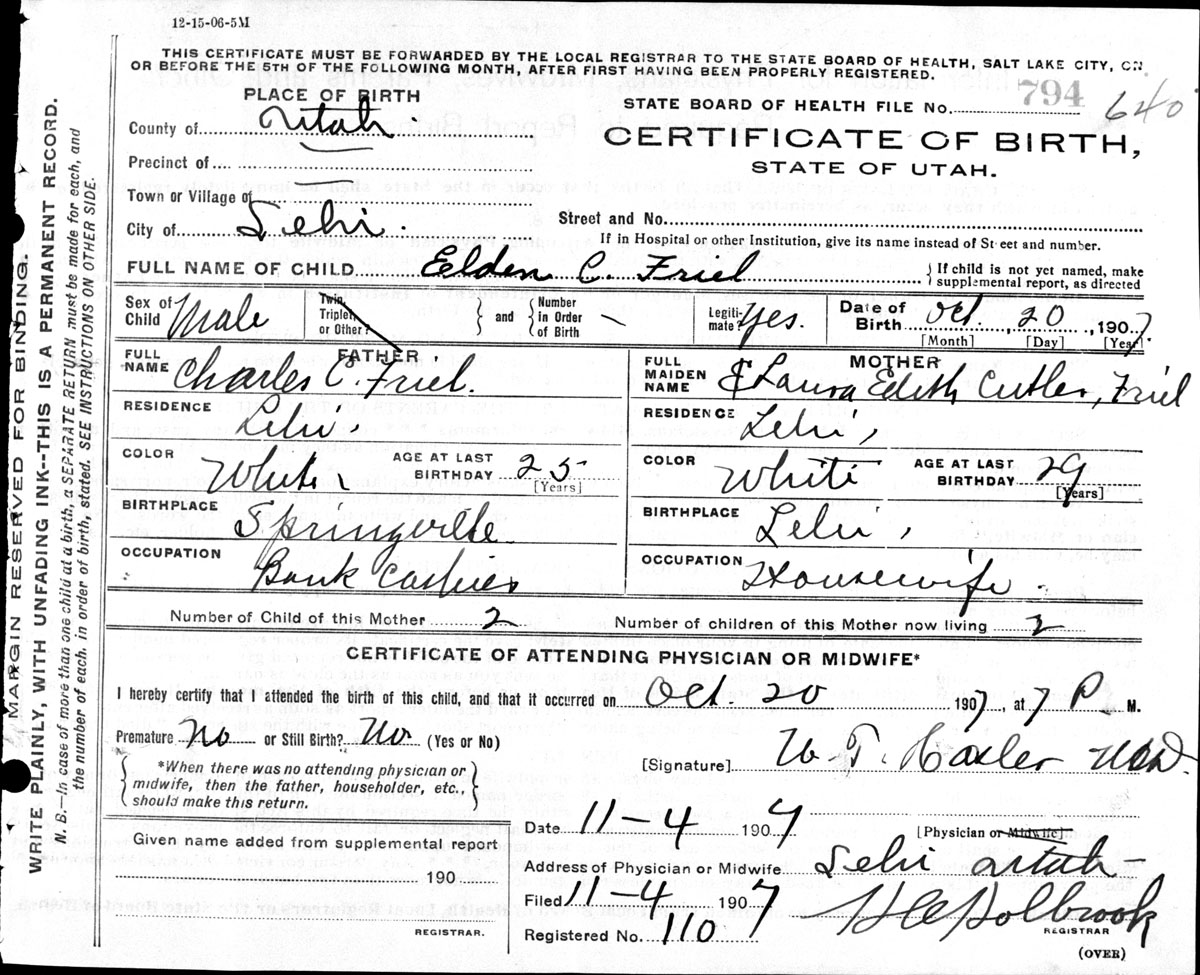 12-15-06-5M
THIS CERTIFICATE MUST BE FORWARDED BY THE LOCAL REGISTRAR TO THE STATE BOARD OF HEALTH, SALT LAKE CITY, ON
OR BEFORE THE 5TH OF THE FOLLOWING MONTH, AFTER FIRST HAVING BEEN PROPERLY REGISTERED.
PLACE OF BIRTH
STATE BOARD OF HEALTH FILE No. 794 640
County of Utah.
CERTIFICATE OF BIRTH,
STATE OF UTAH.
Precinct of
Town or Village of
City of Lehi.
Street and No.
If in Hospital or other Institution, give its name instead of Street and number.
FULL NAME OF CHILD Eelden C. Friel
If child is not yet named, make
supplemental report, as directed
Sex of Child Male
Twin, Triplet, or Other?
and
Number in Order of Birth
Legitimate? Yes.
Date of Birth Oct. 20, 1907
[Month] [Day] [Year]
FATHER
FULL NAME Charles C. Friel.
MOTHER
FULL MAIDEN NAME & Laura Edith Cutler, Friel
RESIDENCE Lehi,
RESIDENCE Lehi,
COLOR White
AGE AT LAST BIRTHDAY 25 [Years]
COLOR White
AGE AT LAST BIRTHDAY 29 [Years]
BIRTHPLACE Springville
BIRTHPLACE Lehi,
OCCUPATION Bank Cashier
OCCUPATION Housewife.
Number of Child of this Mother 2
Number of children of this Mother now living 2
CERTIFICATE OF ATTENDING PHYSICIAN OR MIDWIFE*
I hereby certify that I attended the birth of this child, and that it occurred on Oct. 20 1907, at 7 P. M.
Premature No or Still Birth? No (Yes or No)
[Signature]
*When there was no attending physician or
midwife, then the father, householder, etc.,
should make this return.
Date 11-4 1907
[Physician or Midwife]
Given name added from supplemental report
190
REGISTRAR.
Address of Physician or Midwife Lehi Utah
Filed 11-4 1907
Holbrook
REGISTRAR
Registered No. 110
(OVER)
MARGIN RESERVED FOR BINDING.
WRITE PLAINLY, WITH UNFADING INK--THIS IS A PERMANENT RECORD.
N. B.—In case of more than one child at a birth, a SEPARATE RETURN must be made for each, and
the number of each, in order of birth, stated. SEE INSTRUCTIONS ON OTHER SIDE.